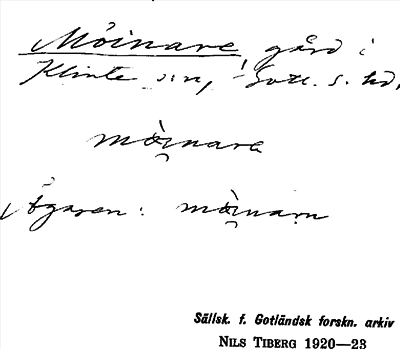 Möinare, gård i
Klinte sn, Gotl. s. hd,
mòi̯nara
Ägaren: mòi̯narn
Sällsk. f. Gotländsk forskn. arkiv
NILS TIBERG 1920—23